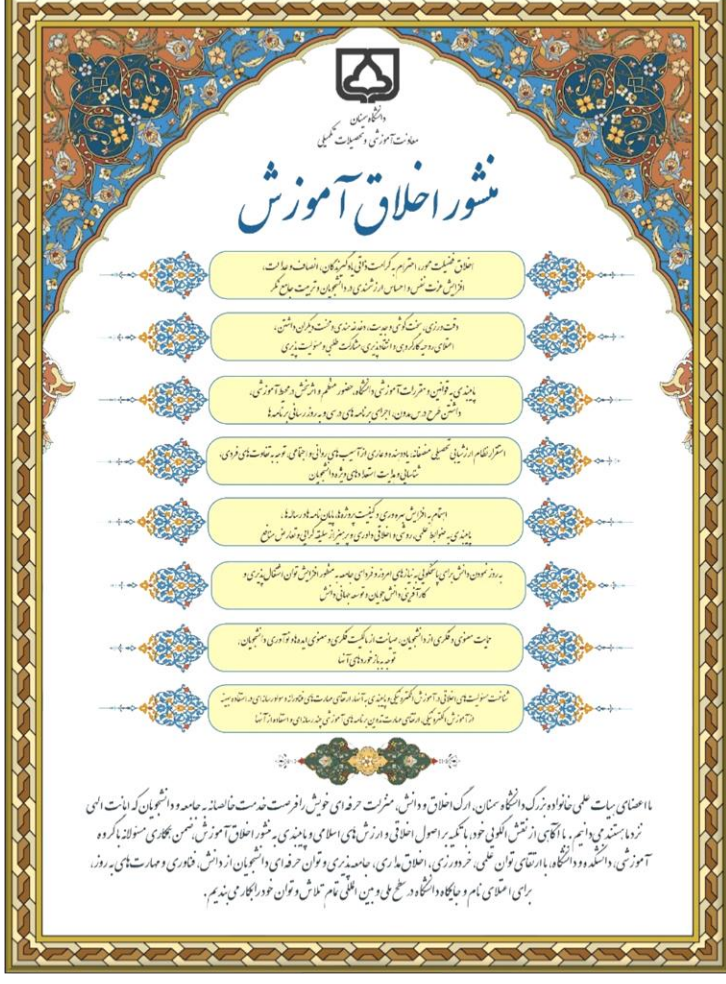 دانشگاه سمنان
معاونت آموزشی و تحصیلات تکمیلی
منشور اخلاق آموزش
اخلاق فضیلت محور، احترام به کرامت ذاتی یادگیرندگان، انصاف و عدالت،
افزایش عزت نفس و احساس ارزشمندی در دانشجویان و تربیت جامع نگر
دقت ورزی، سخت کوشی و جدیت، دغدغه مندی و محبت دیگران داشتن،
اعتلای روحیه کارگروهی و انتقادپذیری، مشارکت طلبی و مسئولیت پذیری
پایبندی به قوانین و مقررات آموزشی دانشگاه، حضور منظم و اثربخش در محیط آموزشی،
داشتن طرح درس مدون، اجرای برنامه های درسی و به روز رسانی برنامه ها
استقرار نظام ارزشیابی تحصیلی منصفانه، یاددهنده و عاری از آسیب های روانی و اجتماعی، توجه به تفاوت های فردی،
شناسایی و هدایت استعدادهای ویژه دانشجویان
اهتمام به افزایش بهره وری و کیفیت پروژه ها، پایان نامه ها و رساله ها،
پایبندی به ضوابط علمی، روشی و اخلاقی داوری و پرهیز از سلیقه گرایی و تعارض منافع
به روز نمودن دانش برای پاسخگویی به نیازهای امروز و فردای جامعه به منظور افزایش توان اشتغال پذیری و
کارآفرینی دانش جویان و توسعه جهانی دانش
حمایت معنوی و فکری از دانشجویان، صیانت از مالکیت فکری و معنوی ایده ها و نوآوری دانشجویان،
توجه به بازخوردهای آنها
شناخت مسئولیت های اخلاقی در آموزش الکترونیکی و پایبندی به آنها، ارتقای مهارت های فناورانه و سواد رسانه ای در استفاده بهینه
از آموزش الکترونیکی، ارتقای مهارت تدوین برنامه های آموزشی چند رسانه ای و استفاده از آنها
ما اعضای هیات علمی خانواده بزرگ دانشگاه سمنان، ارک اخلاق و دانش، منزلت حرفه ای خویش را فرصت خدمت خالصانه به جامعه و دانشجویان که امانت الهی
نزد ما هستند می دانیم. ما آگاهی از نقش الگویی خود، با تکیه بر اصول اخلاقی و ارزش های اسلامی و پایبندی به منشور اخلاق آموزش، ضمن همکاری مسئولانه با گروه
آموزشی، دانشکده و دانشگاه، با ارتقای توان علمی، خردورزی، اخلاق مداری، جامعه پذیری و توان حرفه ای دانشجویان از دانش، فناوری و مهارت های به روز،
برای اعتلای نام و جایگاه دانشگاه در سطح ملی و بین المللی تمام تلاش و توان خود را بکار می بندیم.